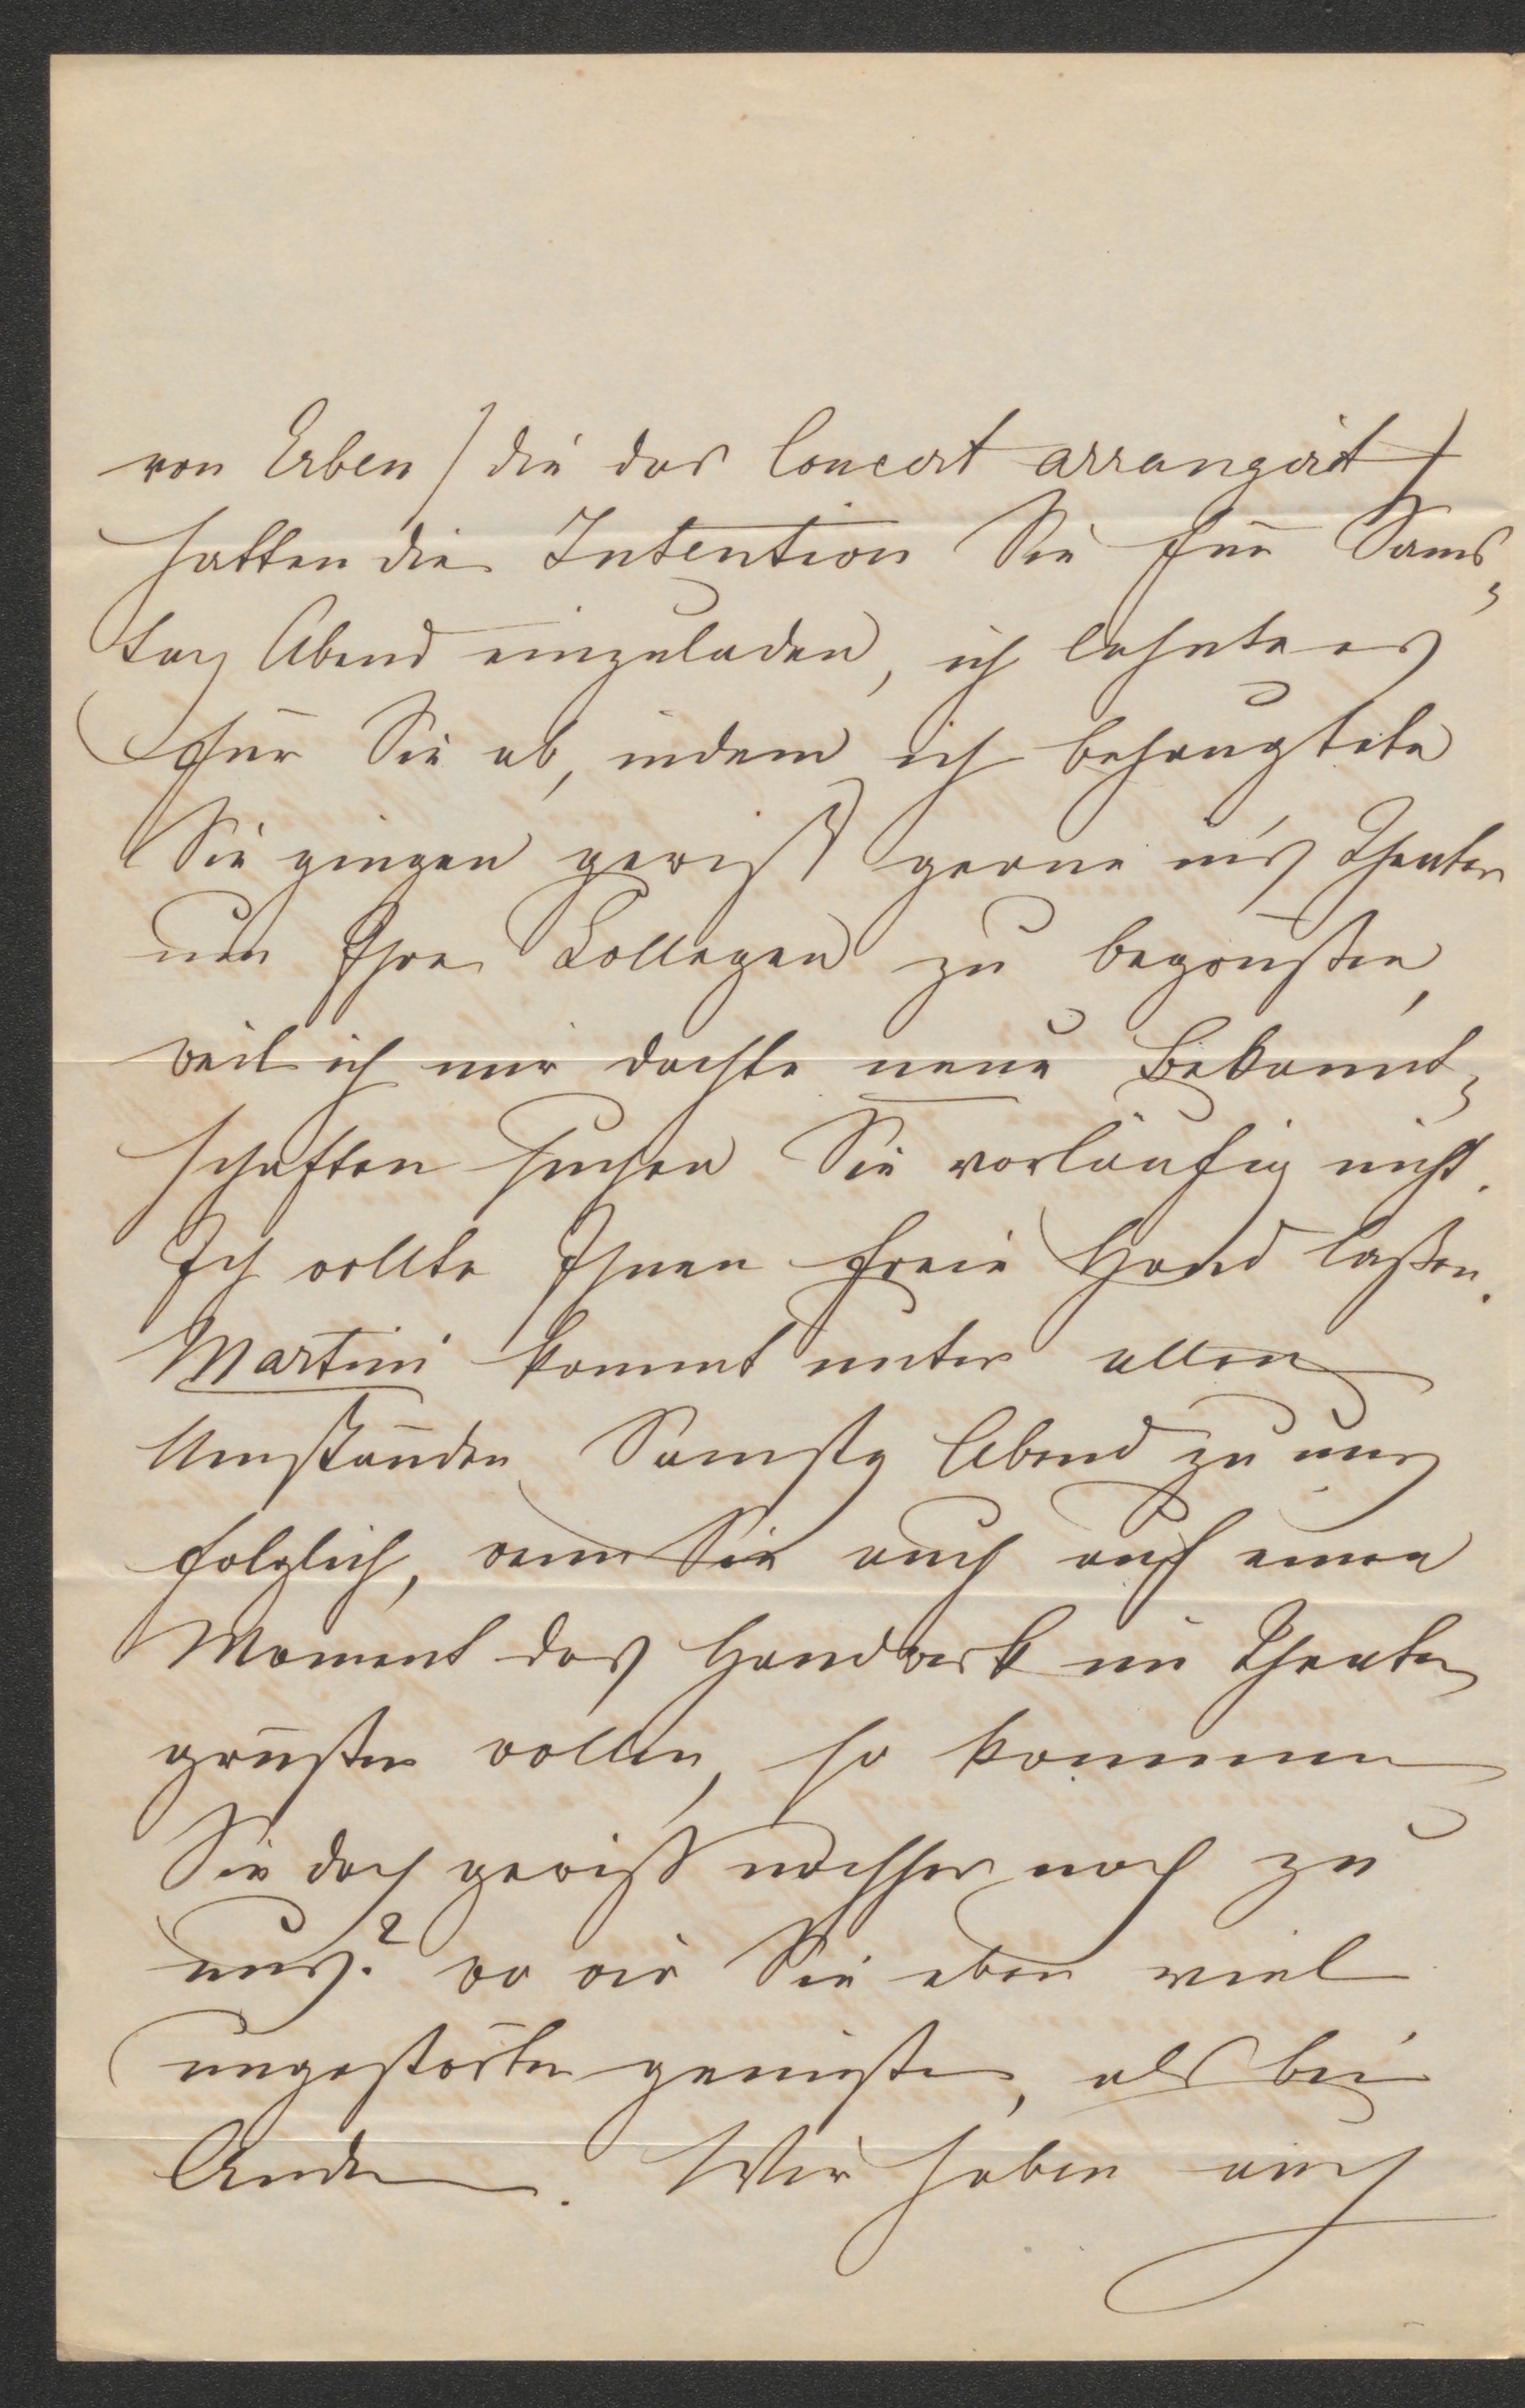 von Erben / die das Concert arrangirt /
hatten die Intention Sie für Sams-
tag Abend einzuladen, ich lehnte es
für Sie ab, indem ich behauptete
Sie gingen gewiß gerne in's Theater
um Ihre Kollegen zu begrüßen,
weil ich mir dachte neue Bekannt-
schaften suchen Sie vorläufig nicht.
Ich wollte Ihnen freie Hand laßen.
Martini kommt unter allen
Umständen Samstg Abend zu uns
folglich, wenn Sie auch auf einen
Moment das Handwerk im Theater
grüßen wollen, so kommen
Sie doch gewiß nachher noch zu
uns? wo wir Sie eben viel
ungestörter genießen, als bei
Andern. Wir haben auch